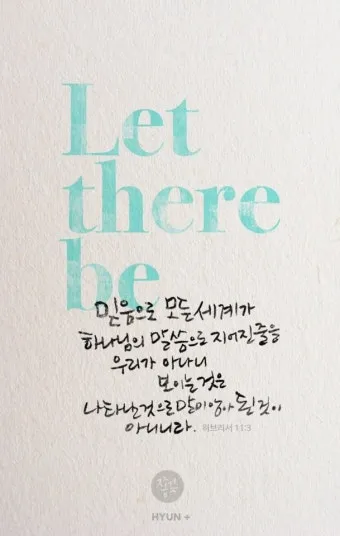 Let
there
be
믿음으로 모든세계가
하나님의 말씀으로 지어진줄을
우리가 아나니
보이는것은
나타난것으로 말미암아 된것이
아니니라. 히브리서 11:3
HYUN +